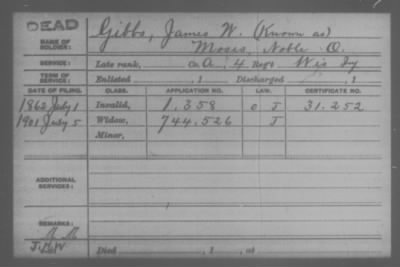 DEAD
NAME OF SOLDIER: Gibbs, James W. (Known as)
Moses, Noble O.
SERVICE: Late rank, Co. A, 4 Reg't Wis Inf
TERM OF SERVICE: Enlisted , 1 Discharged , 1
DATE OF FILING. CLASS. APPLICATION NO. LAW. CERTIFICATE NO.
1862 July 1 Invalid, 1.358 O J 31.252
1901 July 5 Widow, 744.526 J
Minor,
ADDITIONAL SERVICES:
REMARKS:
Died , 1 , at